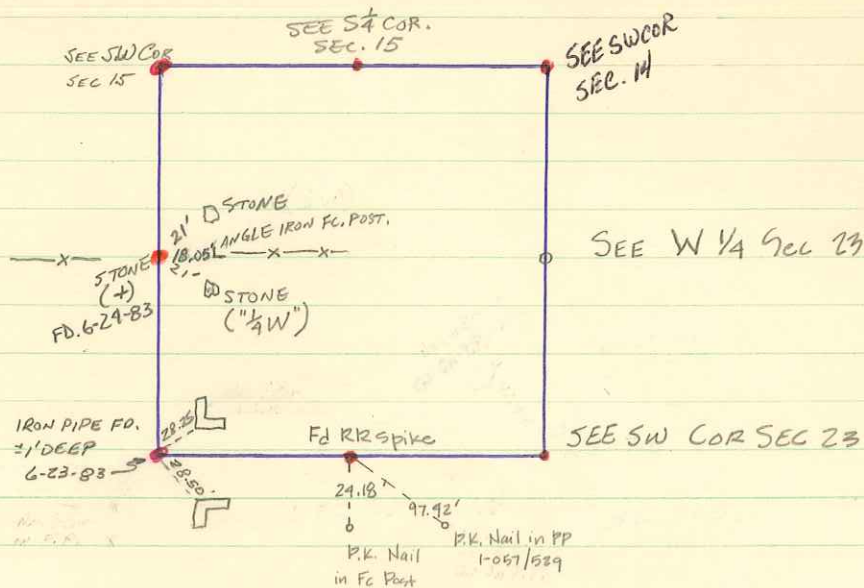 SEE S 1/4 COR.
SEC. 15
SEE SW COR
SEC 15
SEE SW COR
SEC. 14
STONE
21'
ANGLE IRON FC. POST.
18.05
STONE
(+)
FD. 6-24-83
21'
STONE
("1/4 W")
SEE W 1/4 Sec 23
IRON PIPE FD.
±1' DEEP
6-23-83
28.25
28.50'
Fd RR Spike
SEE SW COR SEC 23
24.18'
97.92'
P.K. Nail
in Fc Post
P.K. Nail in PP
1-057/539